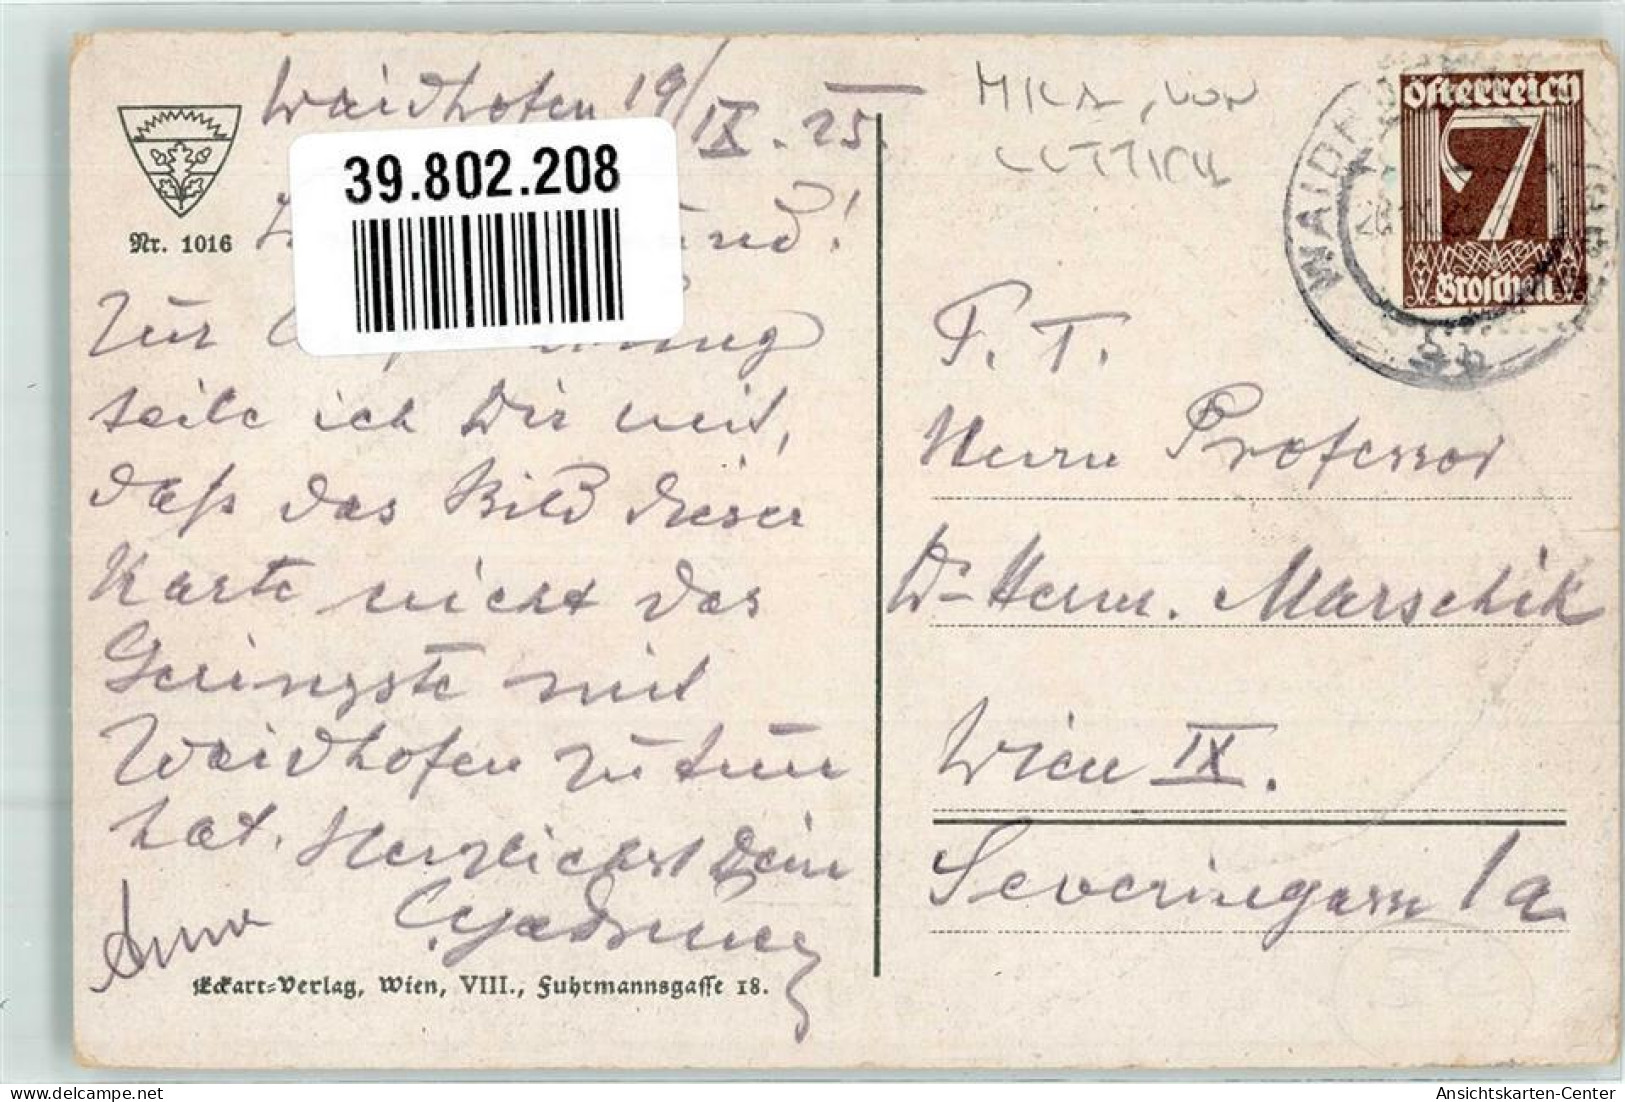 Waidhofen 19/IX. 25.
39.802.208
Nr. 1016
Zur
teile ich Dir mit,
daß das Bild dieser
Karte nicht das
Geringste mit
Waidhofen zu tun
hat. Herzlichst Dein
Anna
Eckart=Verlag, Wien, VIII., Fuhrmannsgasse 18.
MILA, VON
LUTTICH
WAIDH
Österreich
7
Groschen
F. T.
Herrn Professor
Dr Herm. Marschik
Wien IX.
Severingasse 1a
akpool.de
Ansichtskarten-Center